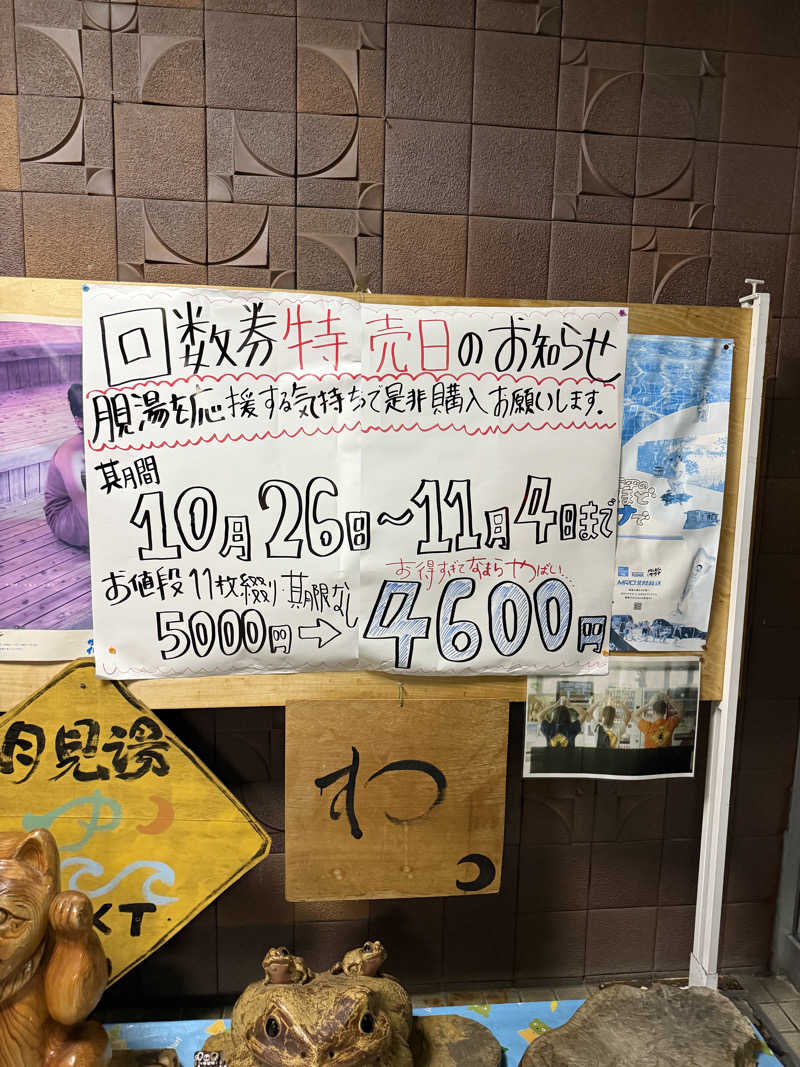 回数券特売日のお知らせ
月見湯を応援する気持ちで是非購入お願いします.
期間
10月26日〜11月4日まで
お値段 11枚綴り 期限なし
お得すぎてなまらやばい...
5000円→4600円
月見湯
ゆ
わ
MRO北陸放送